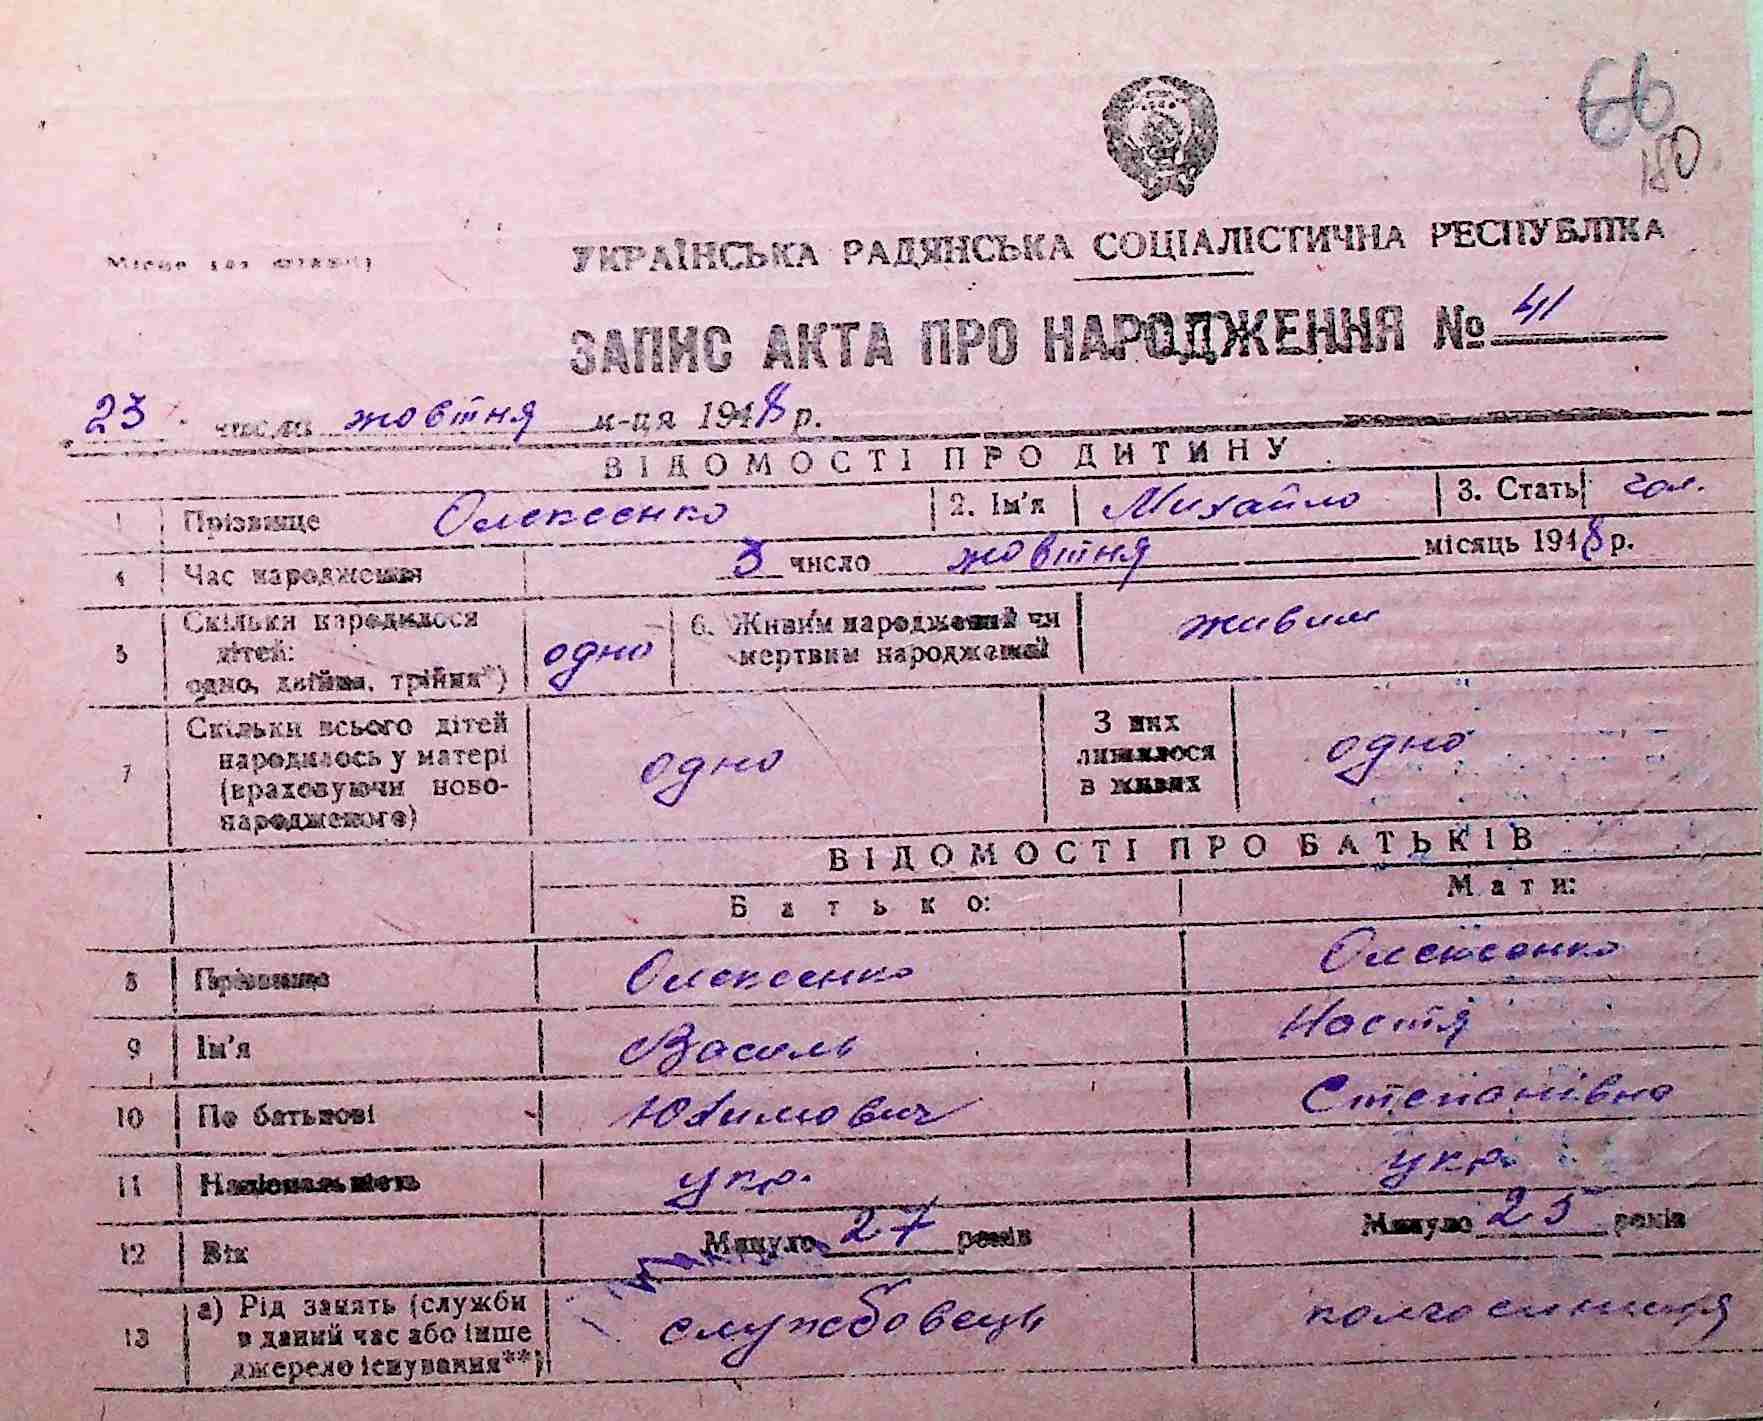 66
180
Місце для штампу
УКРАЇНСЬКА РАДЯНСЬКА СОЦІАЛІСТИЧНА РЕСПУБЛІКА
ЗАПИС АКТА ПРО НАРОДЖЕННЯ № 41
23 числа жовтня м-ця 1948 р.
ВІДОМОСТІ ПРО ДИТИНУ
1 Прізвище Олексенко 2. Ім'я Михайло 3. Стать чол.
4 Час народження 3 число жовтня місяць 1948 р.
5 Скільки народилося дітей: одно, двійня, трійня*) одно 6. Живим народжений чи мертвим народжений живим
7 Скільки всього дітей народилось у матері (враховуючи новонародженого) одно З них лишилося в живих одно
ВІДОМОСТІ ПРО БАТЬКІВ
Батько: Мати:
8 Прізвище Олексенко Олексенко
9 Ім'я Василь Настя
10 По батькові Юхимович Степанівна
11 Національність укр. укр.
12 Вік Минуло 27 років Минуло 25 років
13 а) Рід занять (служби в даний час або інше джерело існування**) службовець колгоспниця